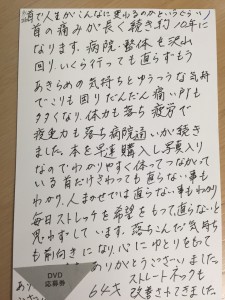 首で人生がこんなに変わるのかというぐらい
首の痛みが長く続き約12年に
なります。病院・整体を沢山
回り、いくら行っても直らずもう
あきらめの気持ちとゆううつな気持
でこりも回りだんだん痛い所も
多くなり、体力も落ち疲労で
免疫力も落ち病院通いが続き
ました。本を早速購入し写真入り
なのでわかりやすく体ってつながって
いる首だけさわっても直らない事も
わかり、人まかせでは直らない事もわかり
毎日ストレッチを希望をもって、直らないと
思わずしています。落ちこんだ気持ち
も前向きになり、心にゆとりをもて
ありがとうございました。
ストレートネックも
64才 改善されてきました。
DVD
応募券
あり